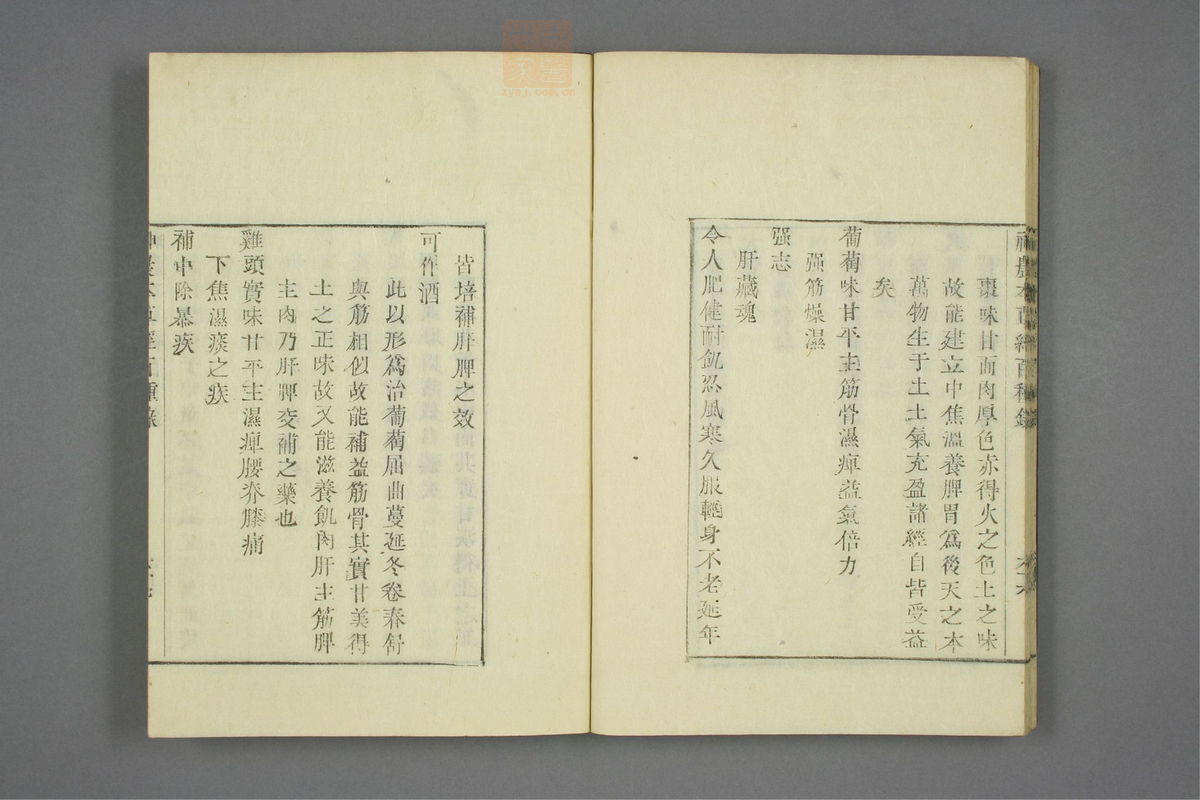 神農本草經百種錄
棗味甘而肉厚色赤得火之色土之味
故能建立中焦溫養脾胃爲後天之本
萬物生于土土氣充盈諸經自皆受益
矣
葡萄味甘平主筋骨濕痺益氣倍力
强筋燥濕
强志
肝藏魂
令人肥健耐飢忍風寒久服輕身不老延年
皆培補肝脾之效
可作酒
此以形爲治葡萄屈曲蔓延冬卷春舒
與筋相似故能補益筋骨其實甘美得
土之正味故又能滋養飢肉肝主筋脾
主肉乃肝脾交補之藥也
雞頭實味甘平主濕痺腰脊膝痛
下焦濕痰之疾
補中除暴疾
zysj.com.cn